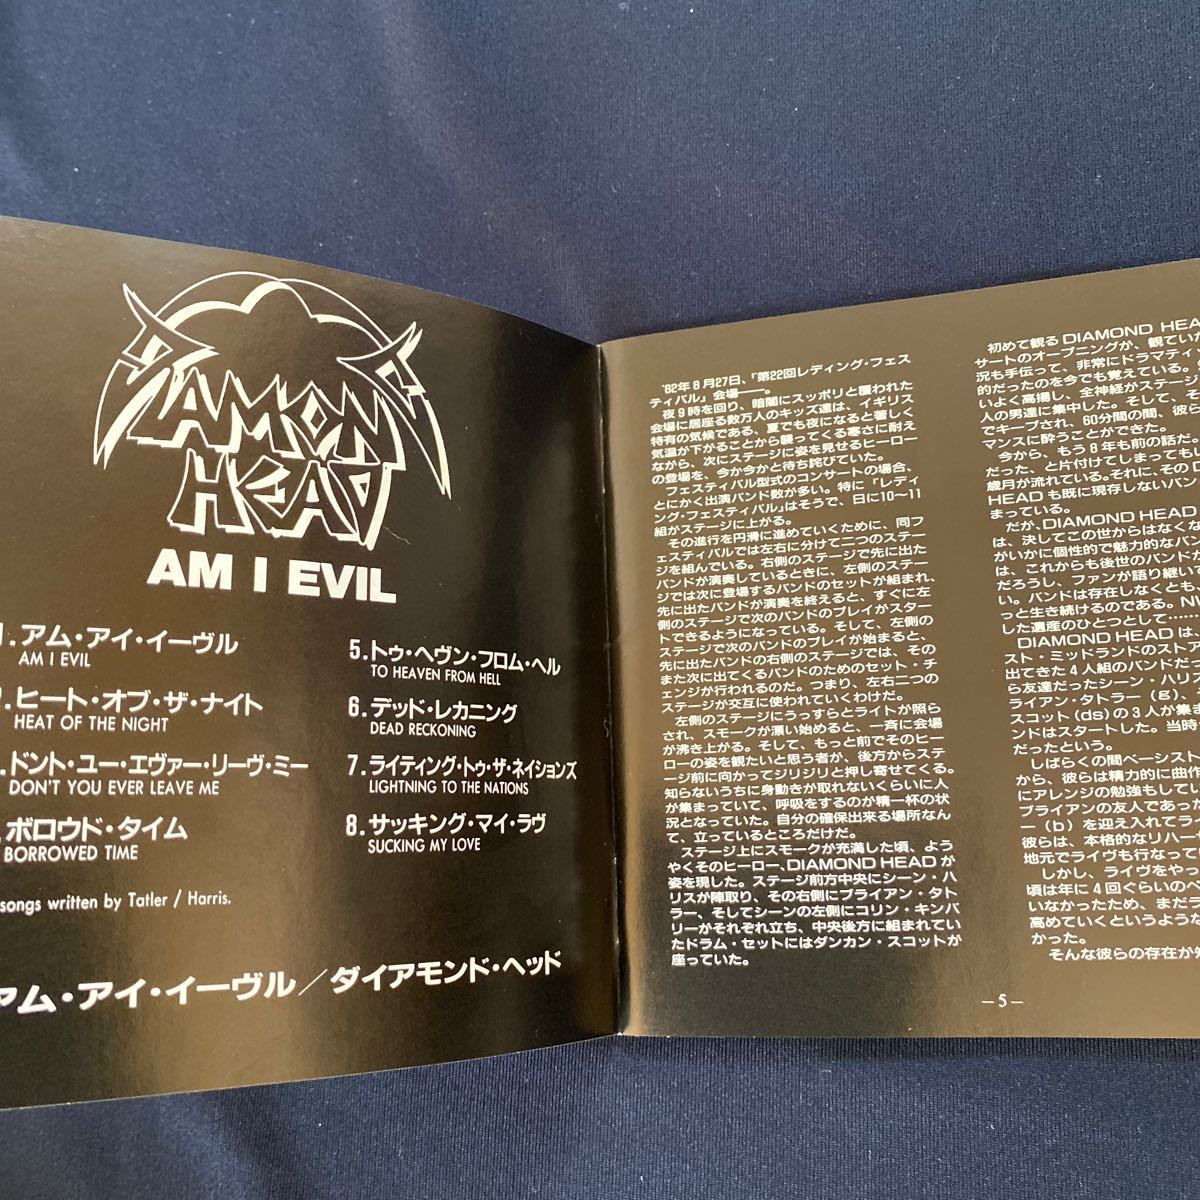 DIAMOND
HEAD
AM I EVIL
1. アム・アイ・イーヴル
AM I EVIL
ヒート・オブ・ザ・ナイト
HEAT OF THE NIGHT
ドント・ユー・エヴァー・リーヴ・ミー
DON'T YOU EVER LEAVE ME
ボロウド・タイム
BORROWED TIME
songs written by Tatler / Harris.
5. トゥ・ヘヴン・フロム・ヘル
TO HEAVEN FROM HELL
6. デッド・レカニング
DEAD RECKONING
7. ライティング・トゥ・ザ・ネイションズ
LIGHTNING TO THE NATIONS
8. サッキング・マイ・ラヴ
SUCKING MY LOVE
アム・アイ・イーヴル／ダイアモンド・ヘッド
'82年8月27日、「第22回レディング・フェス
ティバル」会場──。
夜9時を回り、暗闇にスッポリと覆われた
会場に居座る数万人のキッズ達は、イギリス
特有の気候である、夏でも夜になると著しく
気温が下がることから襲ってくる寒さに耐え
ながら、次にステージに姿を見せるヒーロー
の登場を、今か今かと待ち詫びていた。
フェスティバル型式のコンサートの場合、
とにかく出演バンド数が多い。特に「レディ
ング・フェスティバル」はそうで、日に10〜11
組がステージに上がる。
その進行を円滑に進めていくために、同フ
ェスティバルでは左右に分けて二つのステー
ジを組んでいる。右側のステージで先に出た
バンドが演奏しているときに、左側のステー
ジでは次に登場するバンドのセットが組まれ、
先に出たバンドが演奏を終えると、すぐに左
側のステージで次のバンドのプレイがスター
トできるようになっている。そして、左側の
ステージで次のバンドのプレイが始まると、
先に出たバンドの右側のステージでは、その
また次に出てくるバンドのためのセット・チ
ェンジが行われるのだ。つまり、左右二つの
ステージが交互に使われていくわけだ。
左側のステージにうっすらとライトが照ら
され、スモークが漂い始めると、一斉に会場
が沸き上がる。そして、もっと前でそのヒー
ローの姿を観たいと思う者が、後方からステ
ージ前に向かってジリジリと押し寄せてくる。
知らないうちに身動きが取れないくらいに人
が集まっていて、呼吸をするのが精一杯の状
況となっていた。自分の確保出来る場所なん
て、立っているところだけだ。
ステージ上にスモークが充満した頃、よう
やくそのヒーロー、DIAMOND HEADが
姿を現した。ステージ前方中央にシーン・ハ
リスが陣取り、その右側にブライアン・タト
ラー、そしてシーンの左側にコリン・キンバ
リーがそれぞれ立ち、中央後方に組まれてい
たドラム・セットにはダンカン・スコットが
座っていた。
初めて観るDIAMOND HEA
サートのオープニングが、観ていた
況も手伝って、非常にドラマティ
的だったのを今でも覚えている。
いよく高揚し、全神経がステージ
人の男達に集中した。そして、そ
でキープされ、60分間の間、彼ら
マンスに酔うことができた。
今から、もう8年も前の話だ。
だった、と片付けてしまってもし
歳月が流れている。それに、その D
HEADも既に現存しないバン
まっている。
だが、DIAMOND HEAD
は、決してこの世からはなくな
がいかに個性的で魅力的なバン
は、これからも後世のバンド
だろうし、ファンが語り継いで
い。バンドは存在しなくとも、
っと生き続けるのである。NW
した遺産のひとつとして……
DIAMOND HEADは、
スト・ミッドランドのストア
出てきた4人組のバンドだっ
ら友達だったシーン・ハリス
ライアン・タトラー(g)、
スコット(ds)の3人が集ま
ンドはスタートした。当時
だったという。
しばらくの間ベーシスト
から、彼らは精力的に曲作
にアレンジの勉強もしてい
ブライアンの友人であった
ー(b)を迎え入れてライ
彼らは、本格的なリハー
地元でライヴも行なってい
しかし、ライヴをやっ
頃は年に4回ぐらいのペ
いなかったため、まだラ
高めていくというような
かった。
そんな彼らの存在が知
—5—